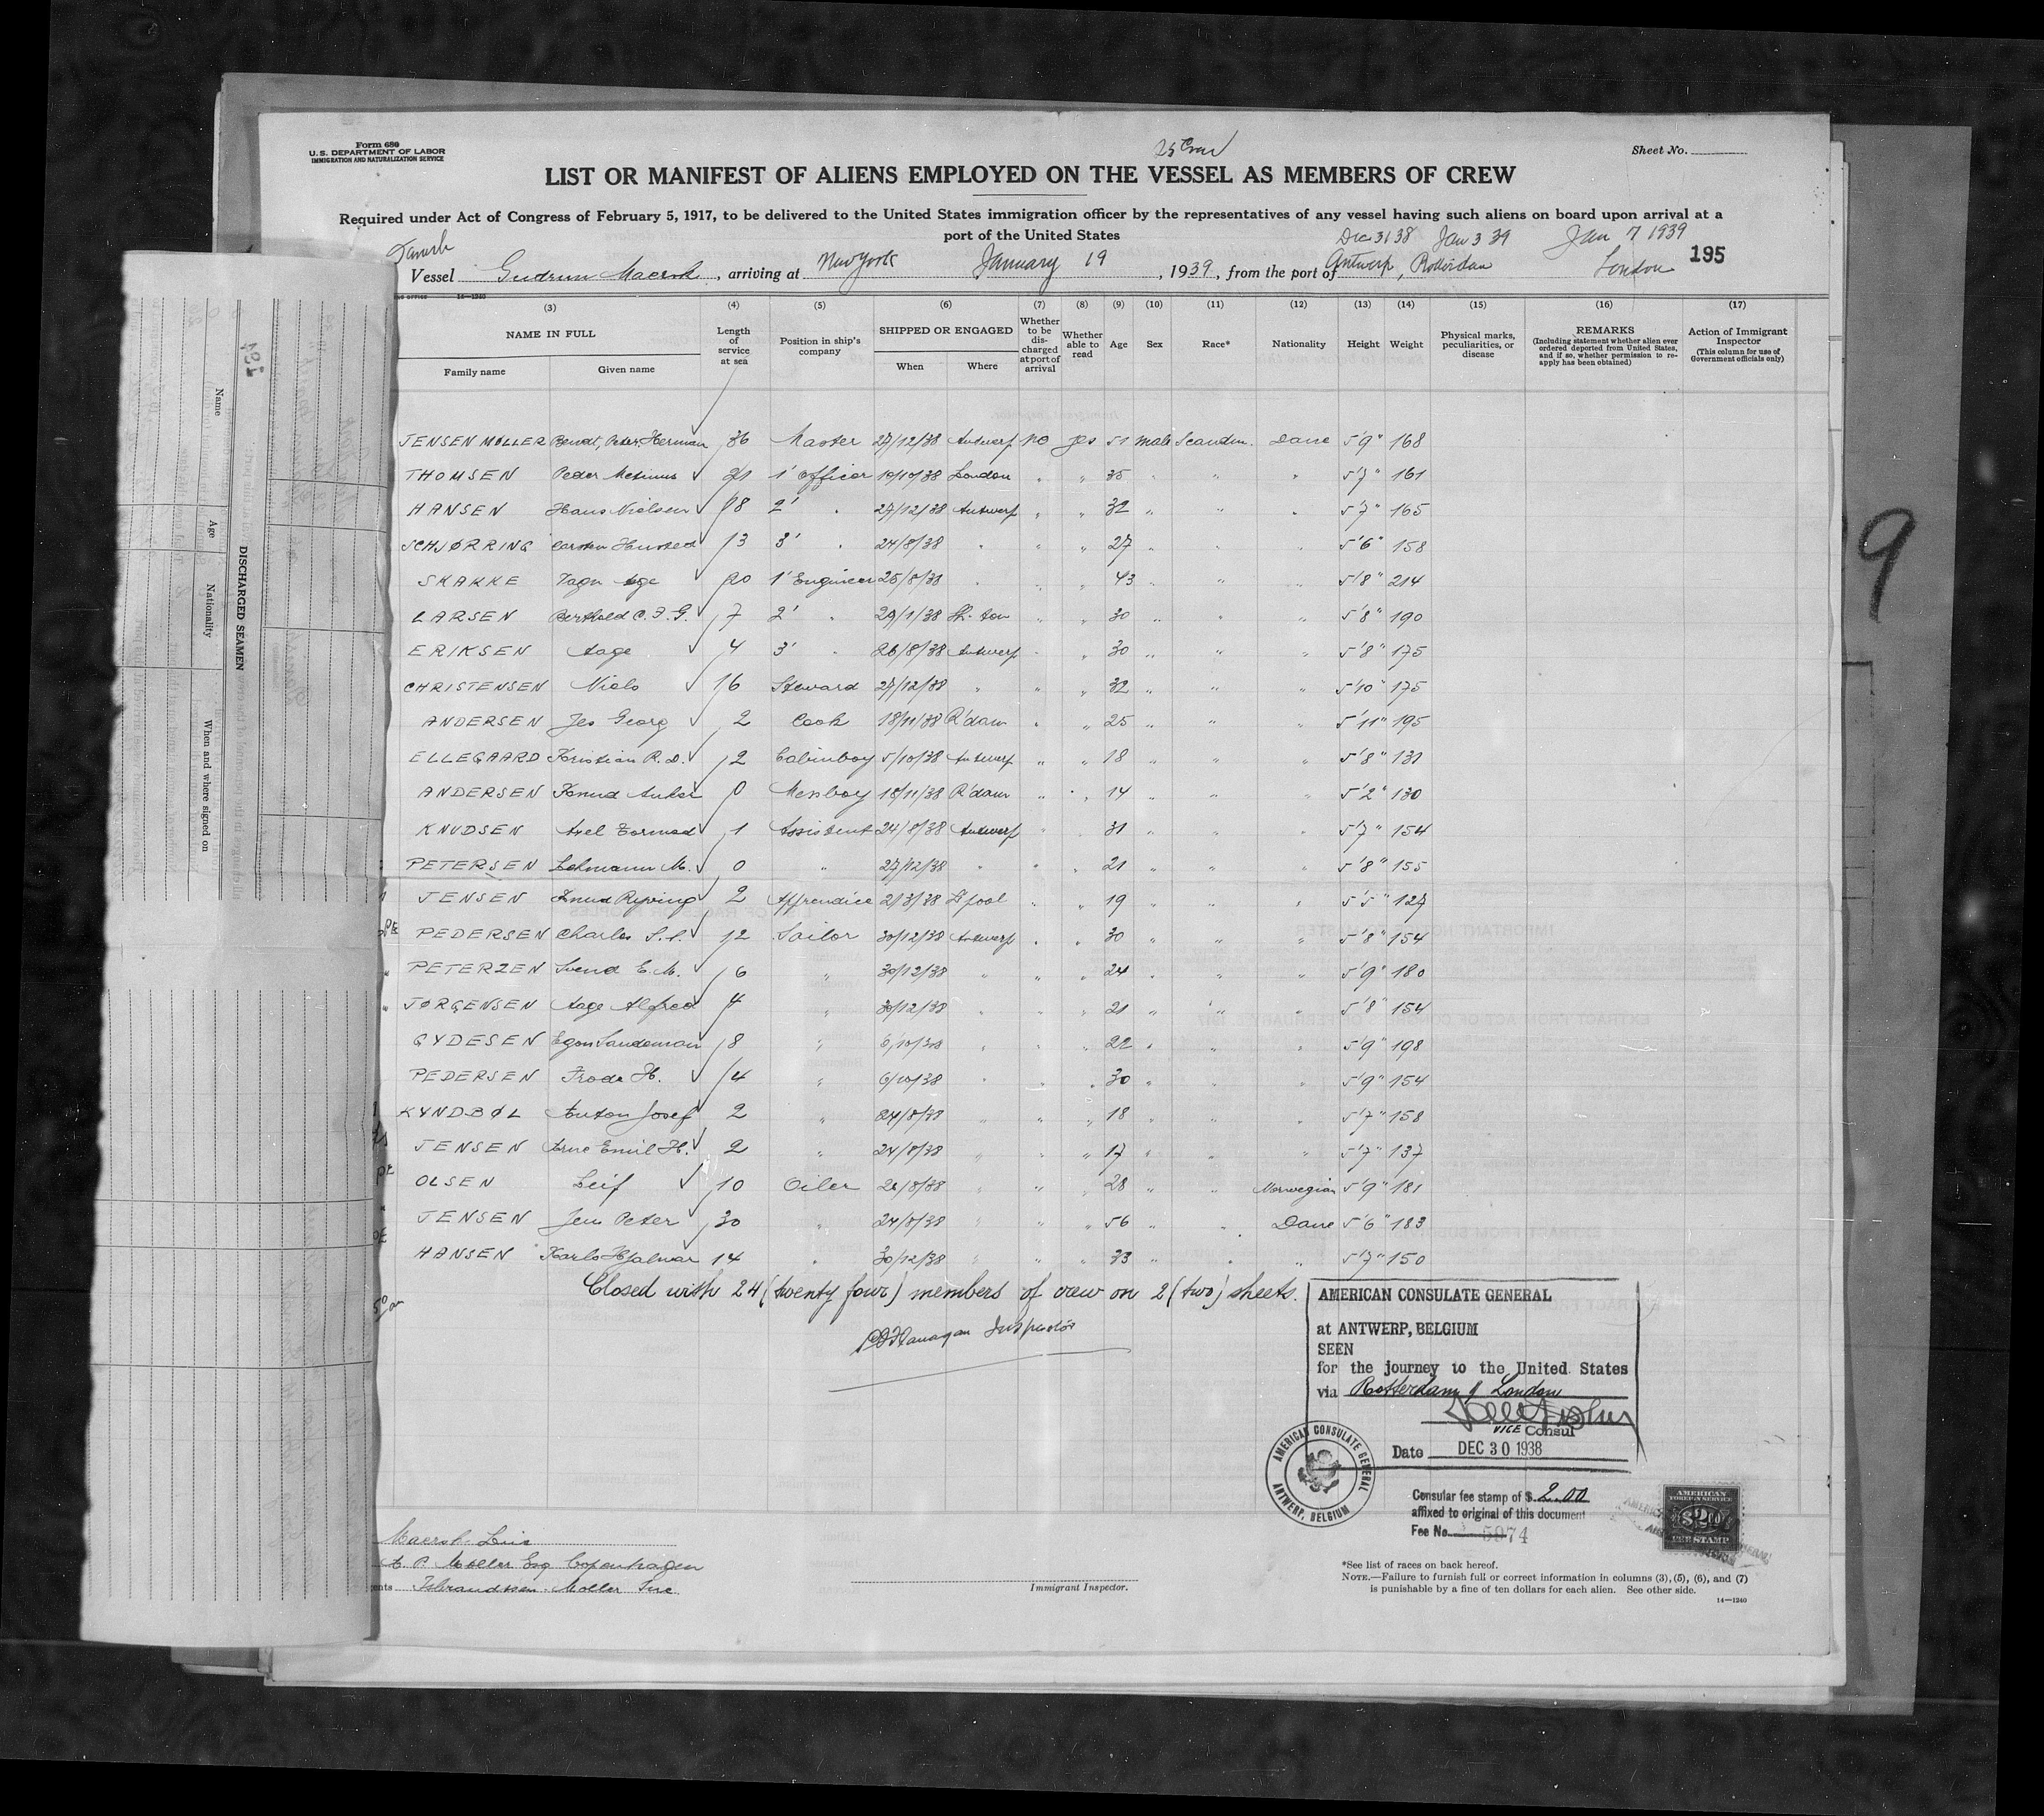 Form 680
U. S. DEPARTMENT OF LABOR
IMMIGRATION AND NATURALIZATION SERVICE
25 Crew
Sheet No.
LIST OR MANIFEST OF ALIENS EMPLOYED ON THE VESSEL AS MEMBERS OF CREW
Required under Act of Congress of February 5, 1917, to be delivered to the United States immigration officer by the representatives of any vessel having such aliens on board upon arrival at a
port of the United States
Dec 31 38 Jan 3 39 Jan 7 1939
Danish
Vessel Gudrun Maersk, arriving at New York January 19, 1939, from the port of Antwerp, Rotterdam London 195
(3) (4) (5) (6) (7) (8) (9) (10) (11) (12) (13) (14) (15) (16) (17)
NAME IN FULL Family name Given name Length of service at sea Position in ship's company SHIPPED OR ENGAGED When Where Whether to be discharged at port of arrival Whether able to read Age Sex Race* Nationality Height Weight Physical marks, peculiarities, or disease REMARKS (Including statement whether alien ever ordered deported from United States, and if so, whether permission to reapply has been obtained) Action of Immigrant Inspector (This column for use of Government officials only)
JENSEN MØLLER Bendt, Peter, Herman 36 Master 27/12/38 Antwerp no yes 51 male Scandin. Dane 5'9" 168
THOMSEN Peder 21 1' Officer 19/10/38 London " " 35 " " " 5'7" 161
HANSEN Hans Nielsen 18 2' " 27/12/38 Antwerp " " 32 " " " 5'7" 165
SCHJØRRING Carsten Husted 13 3' " 24/8/38 " " " 27 " " " 5'6" 158
SKAKKE Aage 20 1' Engineer 25/8/38 " " " 43 " " " 5'8" 214
LARSEN Berthold C. F. G. 7 2' " 29/1/38 " " 30 " " " 5'8" 190
ERIKSEN Aage 4 3' " 26/8/38 Antwerp " " 30 " " " 5'8" 175
CHRISTENSEN Niels 16 Steward 27/12/38 " " " 32 " " " 5'10" 175
ANDERSEN Jes Georg 2 Cook 18/11/38 R'dam " " 25 " " " 5'11" 195
ELLEGAARD Kristian R. D. 2 Cabinboy 5/10/38 Antwerp " " 18 " " " 5'8" 131
ANDERSEN Knud Anker 0 Messboy 18/11/38 R'dam " " 14 " " " 5'2" 130
KNUDSEN Axel 1 Assistent 24/8/38 Antwerp " " 31 " " " 5'7" 154
PETERSEN Lehmann M. 0 " 27/12/38 " " " 21 " " " 5'8" 155
JENSEN Knud 2 Apprendice 2/3/38 L'pool " " 19 " " " 5'5" 127
PEDERSEN Charles 12 Sailor 30/12/38 Antwerp " " 30 " " " 5'8" 154
PETERZEN Svend E. M. 6 " 30/12/38 " " " 24 " " " 5'9" 180
JØRGENSEN Aage Alfred 4 " 30/12/38 " " " 21 " " " 5'8" 154
GYDESEN Egon Sandeman 8 " 6/10/38 " " " 22 " " " 5'9" 198
PEDERSEN Frode H. 14 " 6/10/38 " " " 30 " " " 5'9" 154
KYNDBØL Anton Josef 2 " 24/8/38 " " " 18 " " " 5'7" 158
JENSEN Arne Emil H. 2 " 24/8/38 " " " 17 " " " 5'7" 137
OLSEN Leif 10 Oiler 24/8/38 " " " 28 " " Norwegian 5'9" 181
JENSEN Jens Peter 30 " 24/8/38 " " " 56 " " Dane 5'6" 183
HANSEN Karlo Hjalmar 14 " 30/12/38 " " " 33 " " " 5'7" 150
Closed with 24 (twenty four) members of crew on 2 (two) sheets.
Flanagan Inspector
AMERICAN CONSULATE GENERAL
at ANTWERP, BELGIUM
SEEN
for the journey to the United States
via Rotterdam & London
VICE Consul
Date DEC 30 1938
AMERICAN CONSULATE GENERAL ANTWERP, BELGIUM
Consular fee stamp of $ 2.00
affixed to original of this document
Fee No. 5974
AMERICAN FOREIGN SERVICE $2.00 FEE STAMP
Maersk Line
A. P. Moller Esq Copenhagen
Isbrandtsen-Moller Inc
Immigrant Inspector.
*See list of races on back hereof.
NOTE.—Failure to furnish full or correct information in columns (3), (5), (6), and (7)
is punishable by a fine of ten dollars for each alien. See other side.
14—1240
DISCHARGED SEAMEN
Name Age Nationality When and where signed on
9